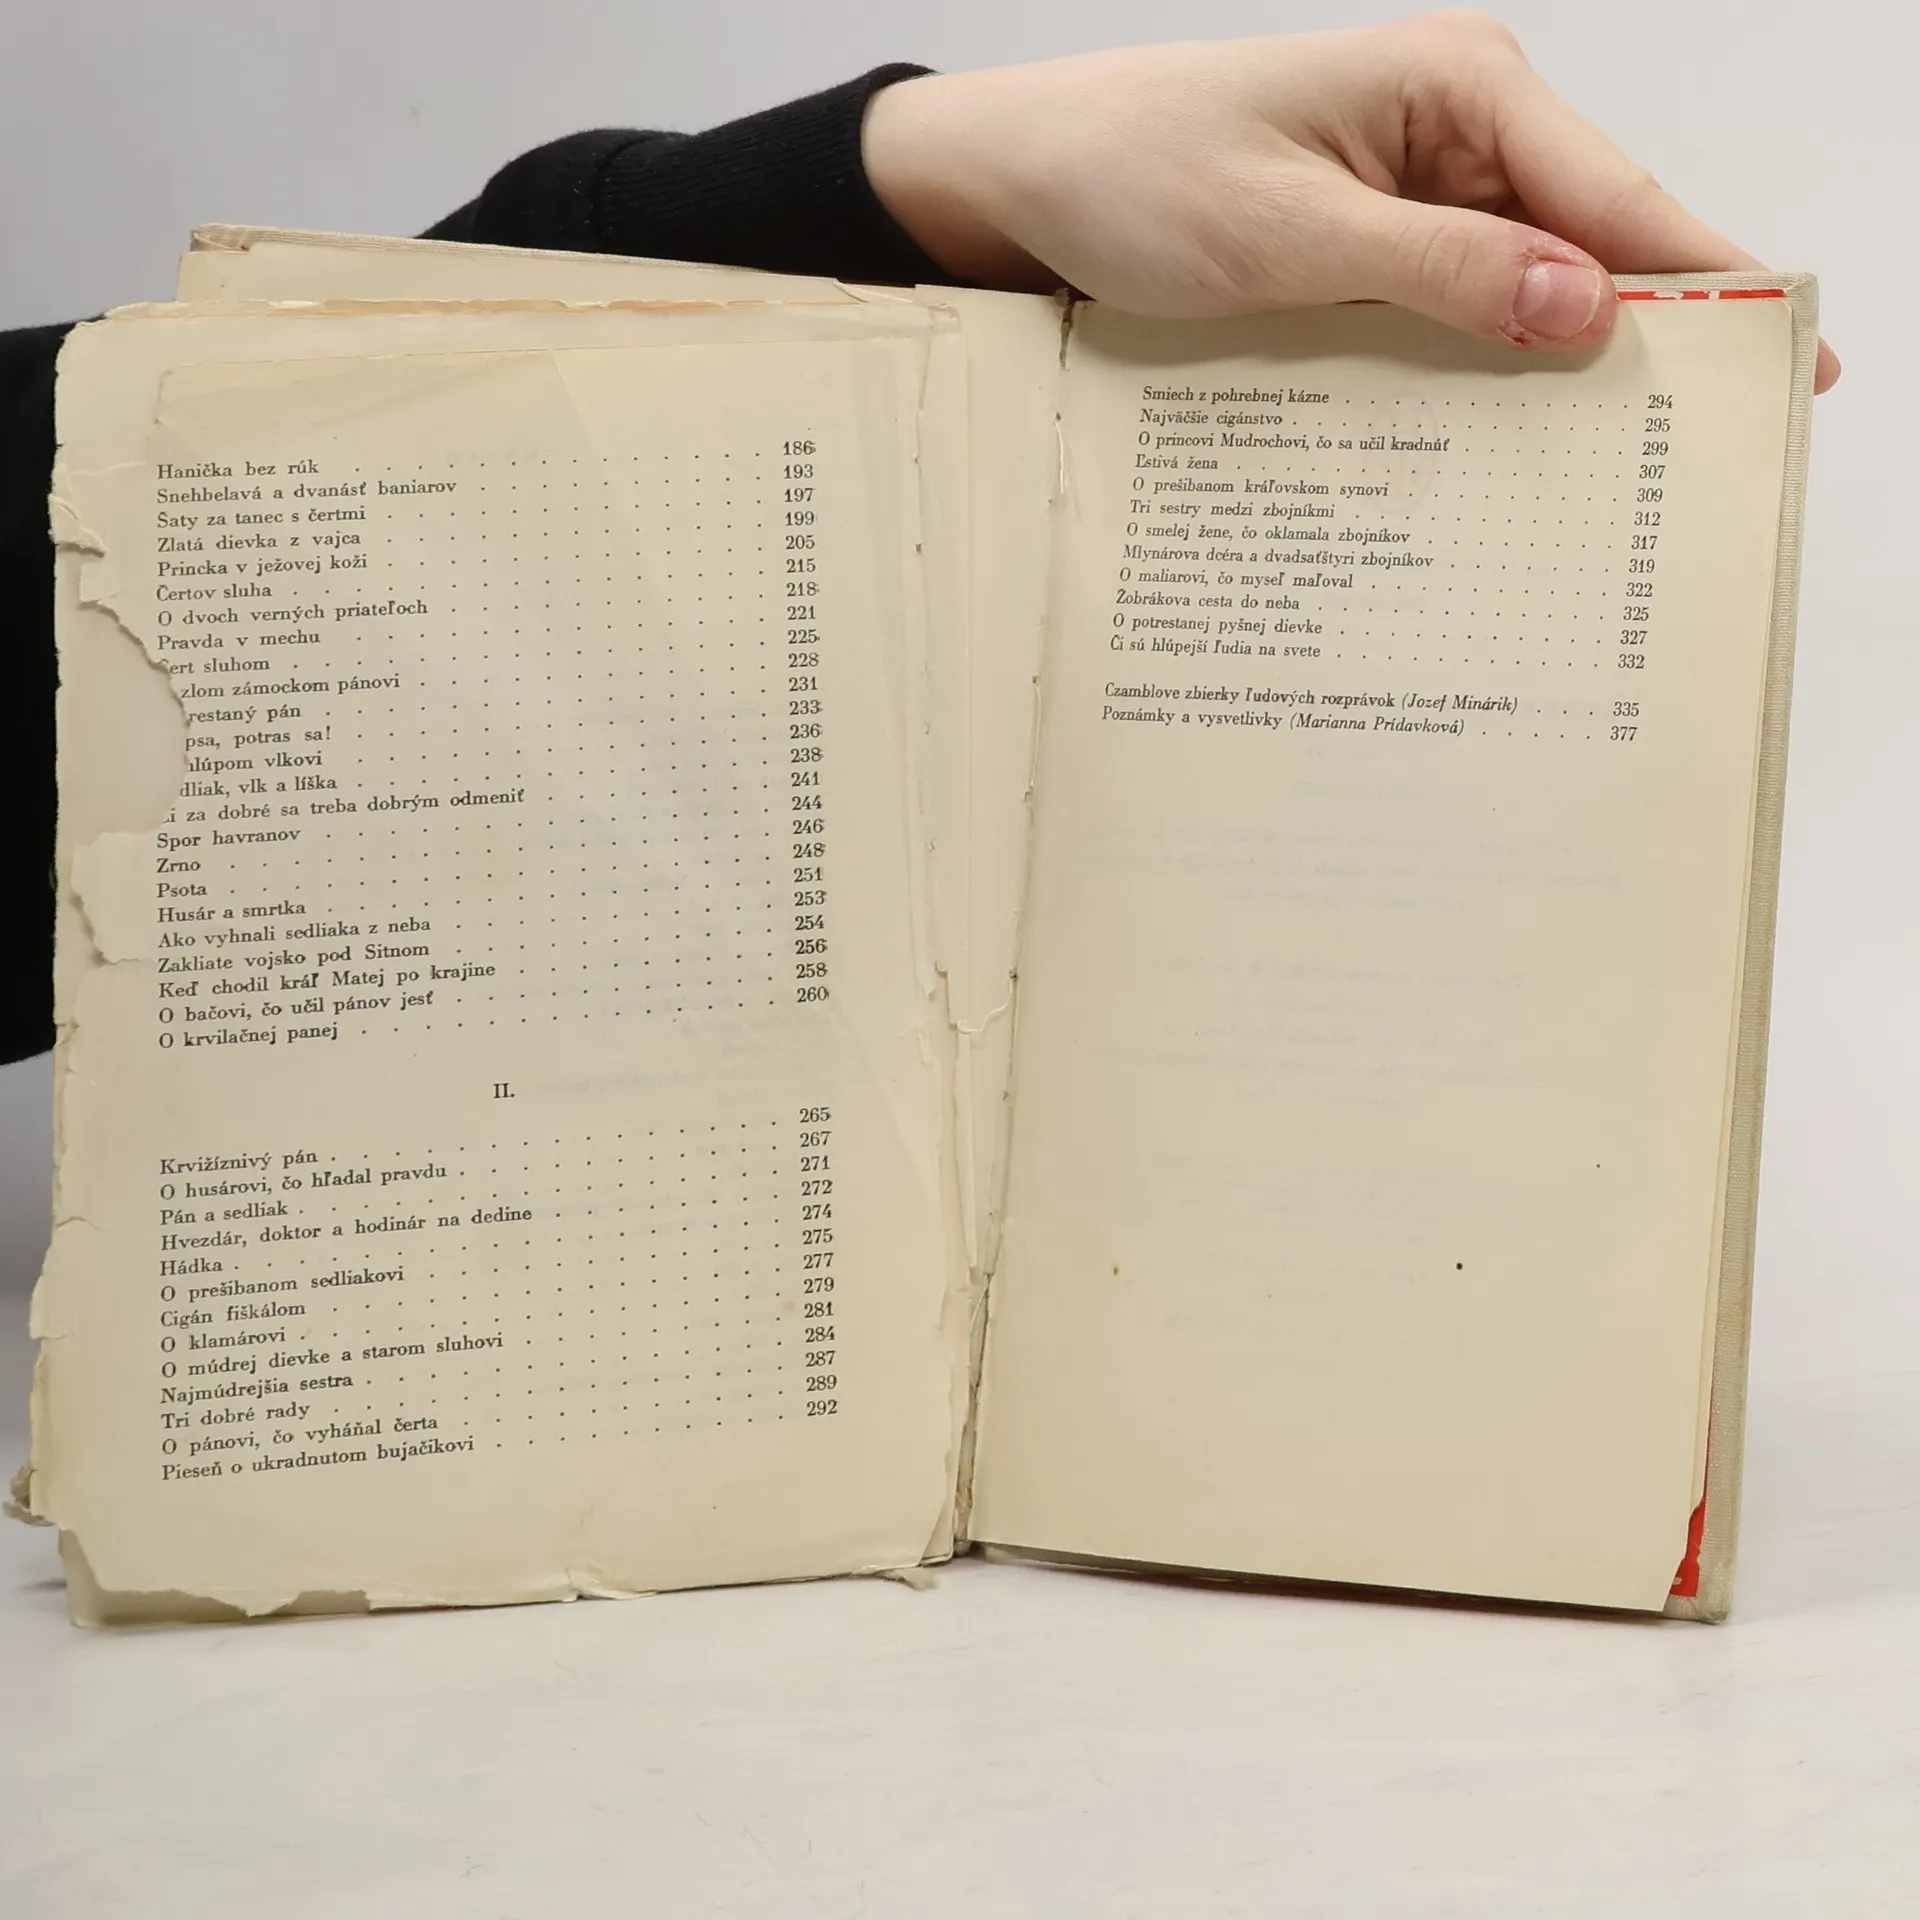 Hanička bez rúk . . . . . . . . . . . . 186
Snehbelavá a dvanásť baniarov . . . . . . . . 193
Šaty za tanec s čertmi . . . . . . . . . . . 197
Zlatá dievka z vajca . . . . . . . . . . . 199
Princka v ježovej koži . . . . . . . . . . . 205
Čertov sluha . . . . . . . . . . . . . . 215
O dvoch verných priateľoch . . . . . . . . . 218
Pravda v mechu . . . . . . . . . . . . 221
ert sluhom . . . . . . . . . . . . . . 225
zlom zámockom pánovi . . . . . . . . . . 228
restaný pán . . . . . . . . . . . . . 231
psa, potras sa! . . . . . . . . . . . . . 233
hlúpom vlkovi . . . . . . . . . . . . 236
dliak, vlk a líška . . . . . . . . . . . . 238
i za dobré sa treba dobrým odmeniť . . . . . . 241
Spor havranov . . . . . . . . . . . . . 244
Zrno . . . . . . . . . . . . . . . . 246
Psota . . . . . . . . . . . . . . . . 248
Husár a smrtka . . . . . . . . . . . . . 251
Ako vyhnali sedliaka z neba . . . . . . . . . 253
Zakliate vojsko pod Sitnom . . . . . . . . . 254
Keď chodil kráľ Matej po krajine . . . . . . . 256
O bačovi, čo učil pánov jesť . . . . . . . . . 258
O krvilačnej panej . . . . . . . . . . . . 260
II.
Krvižíznivý pán . . . . . . . . . . . . . 265
O husárovi, čo hľadal pravdu . . . . . . . . . 267
Pán a sedliak . . . . . . . . . . . . . . 271
Hvezdár, doktor a hodinár na dedine . . . . . . 272
Hádka . . . . . . . . . . . . . . . . 274
O prešibanom sedliakovi . . . . . . . . . . 275
Cigán fiškálom . . . . . . . . . . . . . 277
O klamárovi . . . . . . . . . . . . . . 279
O múdrej dievke a starom sluhovi . . . . . . . 281
Najmúdrejšia sestra . . . . . . . . . . . . 284
Tri dobré rady . . . . . . . . . . . . . 287
O pánovi, čo vyháňal čerta . . . . . . . . . 289
Pieseň o ukradnutom bujačikovi . . . . . . . . 292
Smiech z pohrebnej kázne . . . . . . . . . . . 294
Najväčšie cigánstvo . . . . . . . . . . . . . 295
O princovi Mudrochovi, čo sa učil kradnúť . . . . . . 299
Ľstivá žena . . . . . . . . . . . . . . . 307
O prešibanom kráľovskom synovi . . . . . . . . 309
Tri sestry medzi zbojníkmi . . . . . . . . . . 312
O smelej žene, čo oklamala zbojníkov . . . . . . . 317
Mlynárova dcéra a dvadsaťštyri zbojníkov . . . . . . 319
O maliarovi, čo myseľ maľoval . . . . . . . . . 322
Žobrákova cesta do neba . . . . . . . . . . . 325
O potrestanej pyšnej dievke . . . . . . . . . . 327
Či sú hlúpejší ľudia na svete . . . . . . . . . . 332
Czamblove zbierky ľudových rozprávok (Jozef Minárik) . . . 335
Poznámky a vysvetlivky (Marianna Prídavková) . . . . . 377